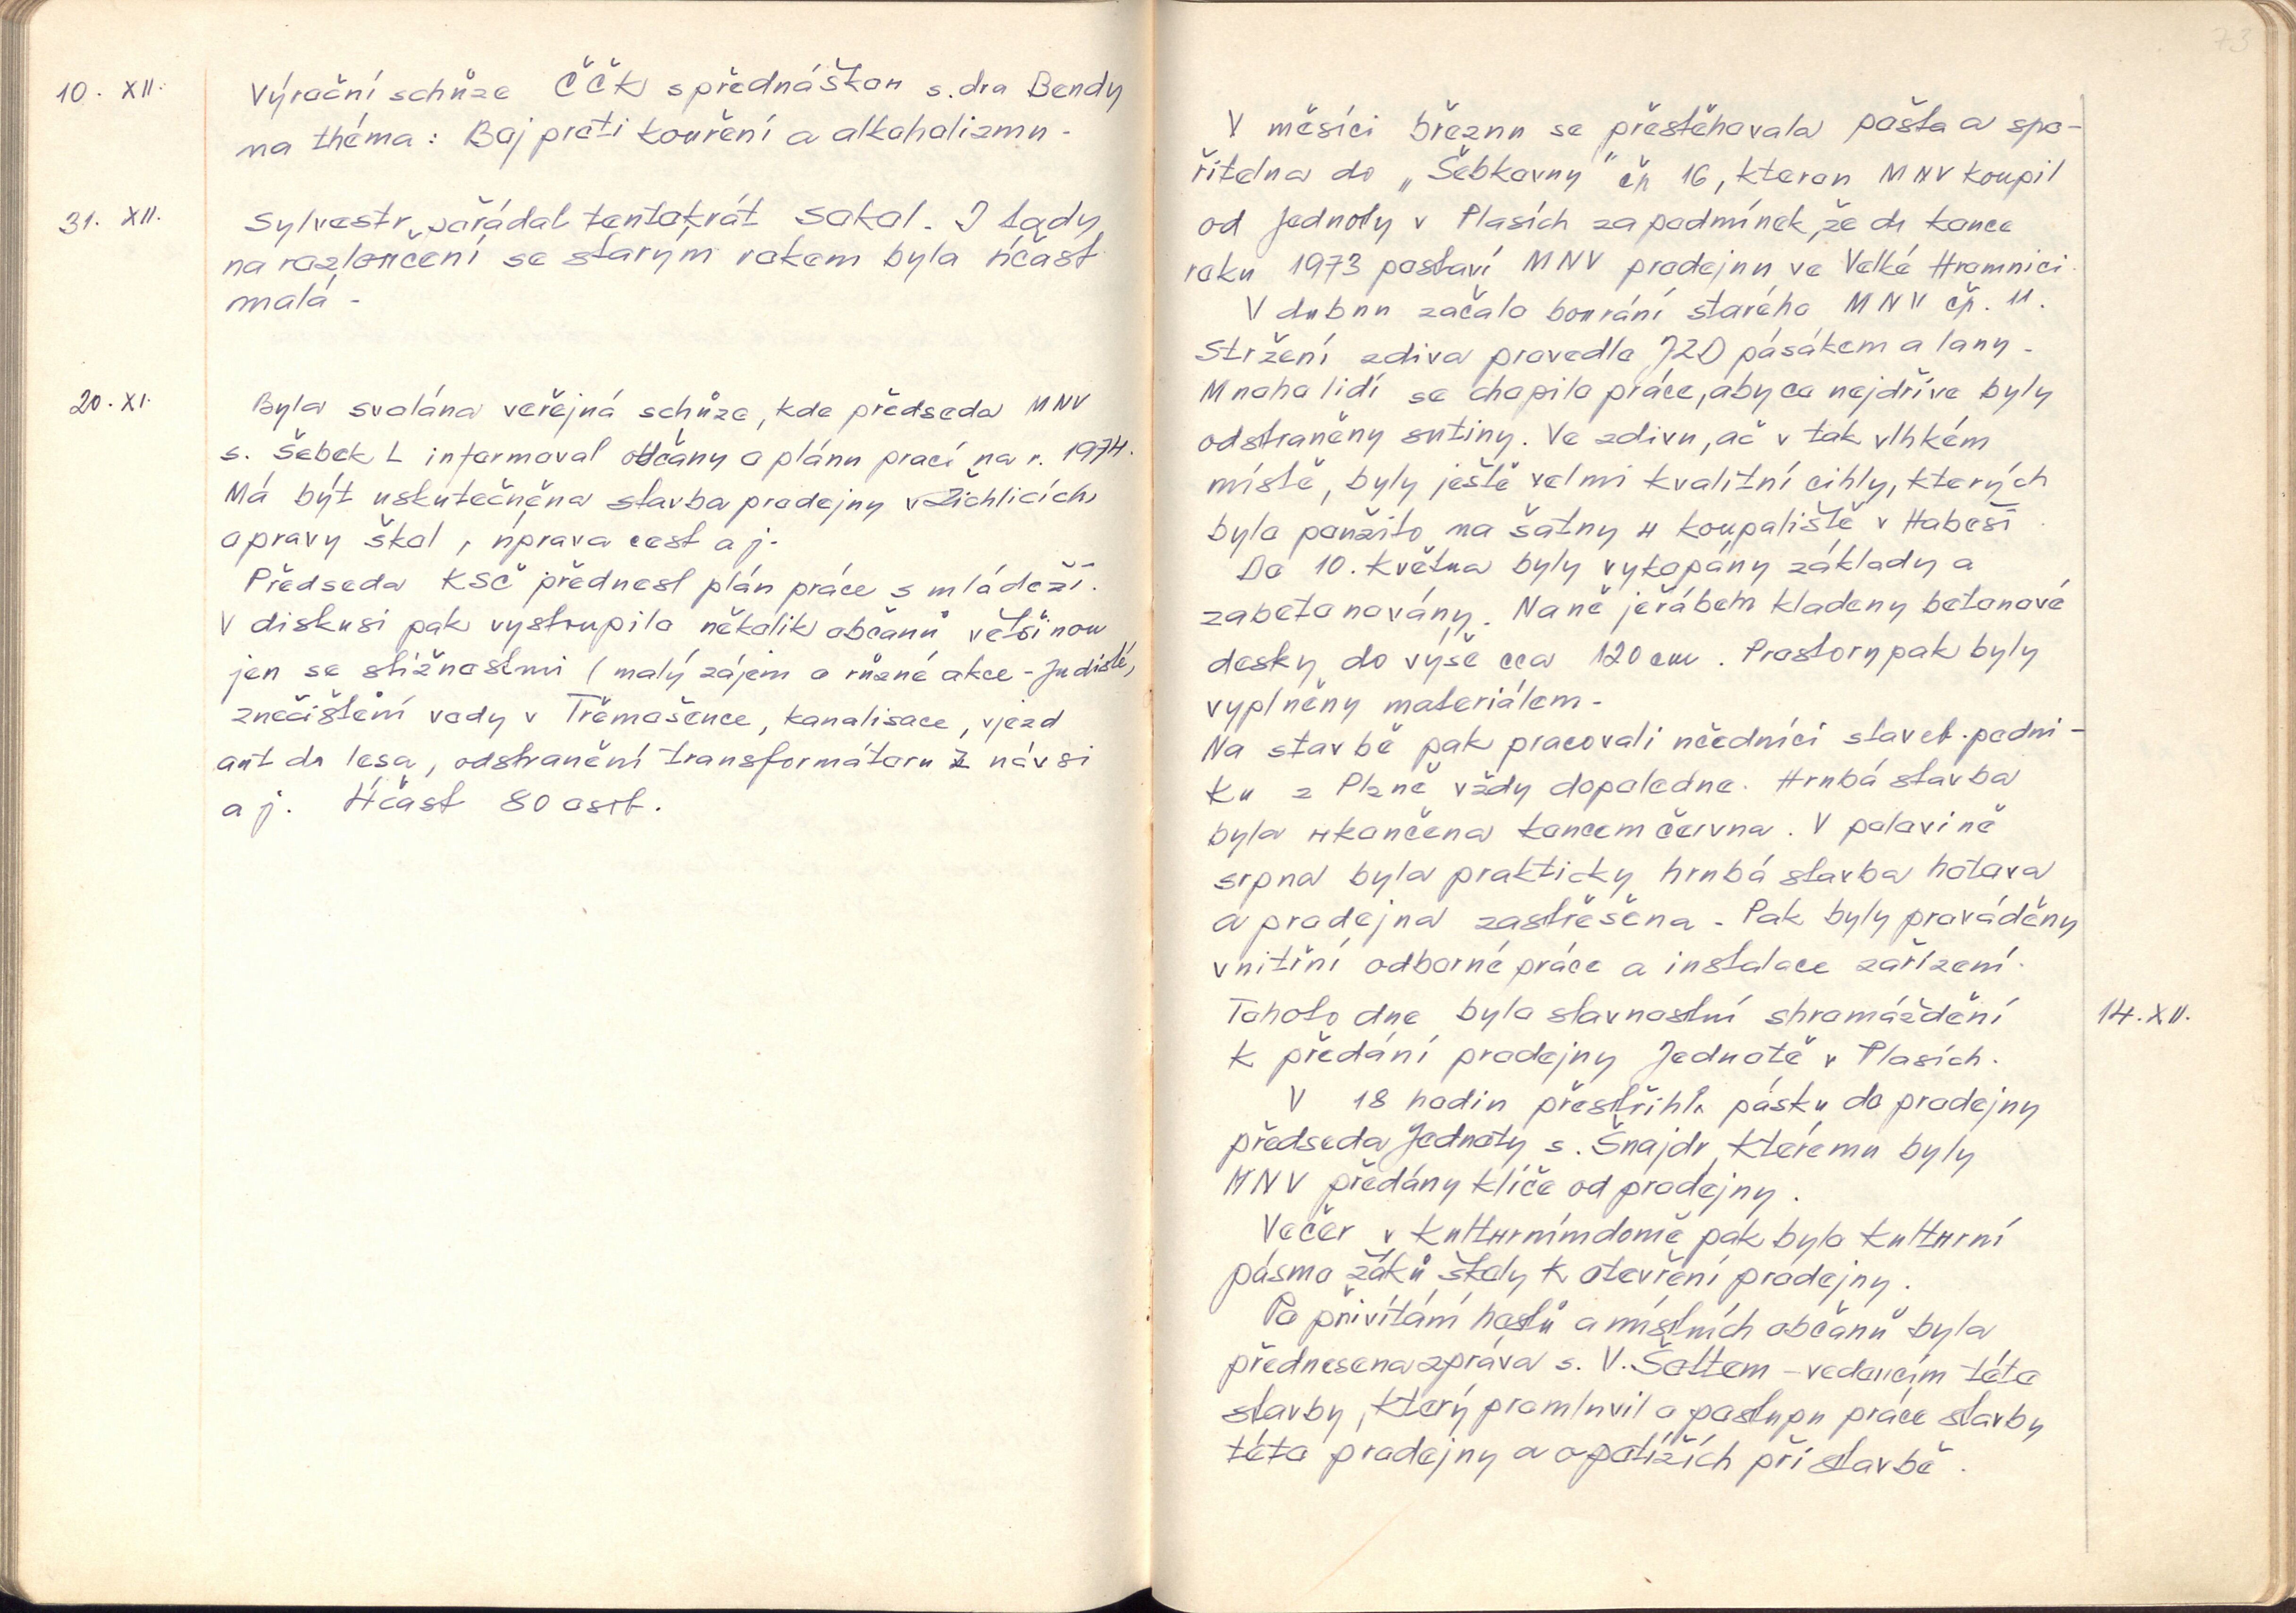 10. XII. Výroční schůze ČČK s přednáškou s. dra Bendy
na théma: Boj proti kouření a alkoholizmu.
31. XII. Sylvestr pořádal tentokrát Sokol. I tady
na rozloučení se starým rokem byla účast
malá.
20. XI. Byla svolána veřejná schůze, kde předseda MNV
s. Šebek L informoval občany o plánu prací na r. 1974.
Má být uskutečněna stavba prodejny v Žichlicích,
opravy škol, úprava cest a j.
Předseda KSČ přednesl plán práce s mládeží.
V diskusi pak vystoupilo několik občanů většinou
jen se stížnostmi (malý zájem o různé akce - Judisté,
znečištění vody v Třemošence, kanalisace, vjezd
aut do lesa, odstranění transformátoru z návsi
a j. Účast 80 osob.
73
V měsíci březnu se přestěhovala pošta a spo-
řitelna do „Šebkovny" čp 16, kterou MNV koupil
od Jednoty v Plasích za podmínek, že do konce
roku 1973 postaví MNV prodejnu ve Velké Hromnici.
V dubnu začalo bourání starého MNV čp. 11.
Stržení zdiva provedlo JZD pásákem a lany.
Mnoho lidí se chopilo práce, aby co nejdříve byly
odstraněny sutiny. Ve zdivu, ač v tak vlhkém
místě, byly ještě velmi kvalitní cihly, kterých
bylo použito na šatny u koupaliště v Habeši.
Do 10. května byly vykopány základy a
zabetonovány. Na ně jeřábem kladeny betonové
desky do výše cca 120 cm. Prostory pak byly
vyplněny materiálem.
Na stavbě pak pracovali učedníci staveb. podni-
ku z Plzně vždy dopoledne. Hrubá stavba
byla ukončena koncem června. V polovině
srpna byla prakticky hrubá stavba hotova
a prodejna zastřešena. Pak byly prováděny
vnitřní odborné práce a instalace zařízení.
Tohoto dne bylo slavnostní shromáždění 14. XII.
k předání prodejny Jednotě v Plasích.
V 18 hodin přestřihl pásku do prodejny
předseda Jednoty s. Šnajdr, kterému byly
MNV předány klíče od prodejny.
Večer v kulturním domě pak bylo kulturní
pásmo žáků školy k otevření prodejny.
Po přivítání hostů a místních občanů byla
přednesena zpráva s. V. Šottem - vedoucím této
stavby, který promluvil o postupu práce stavby
této prodejny a o potížích při stavbě.